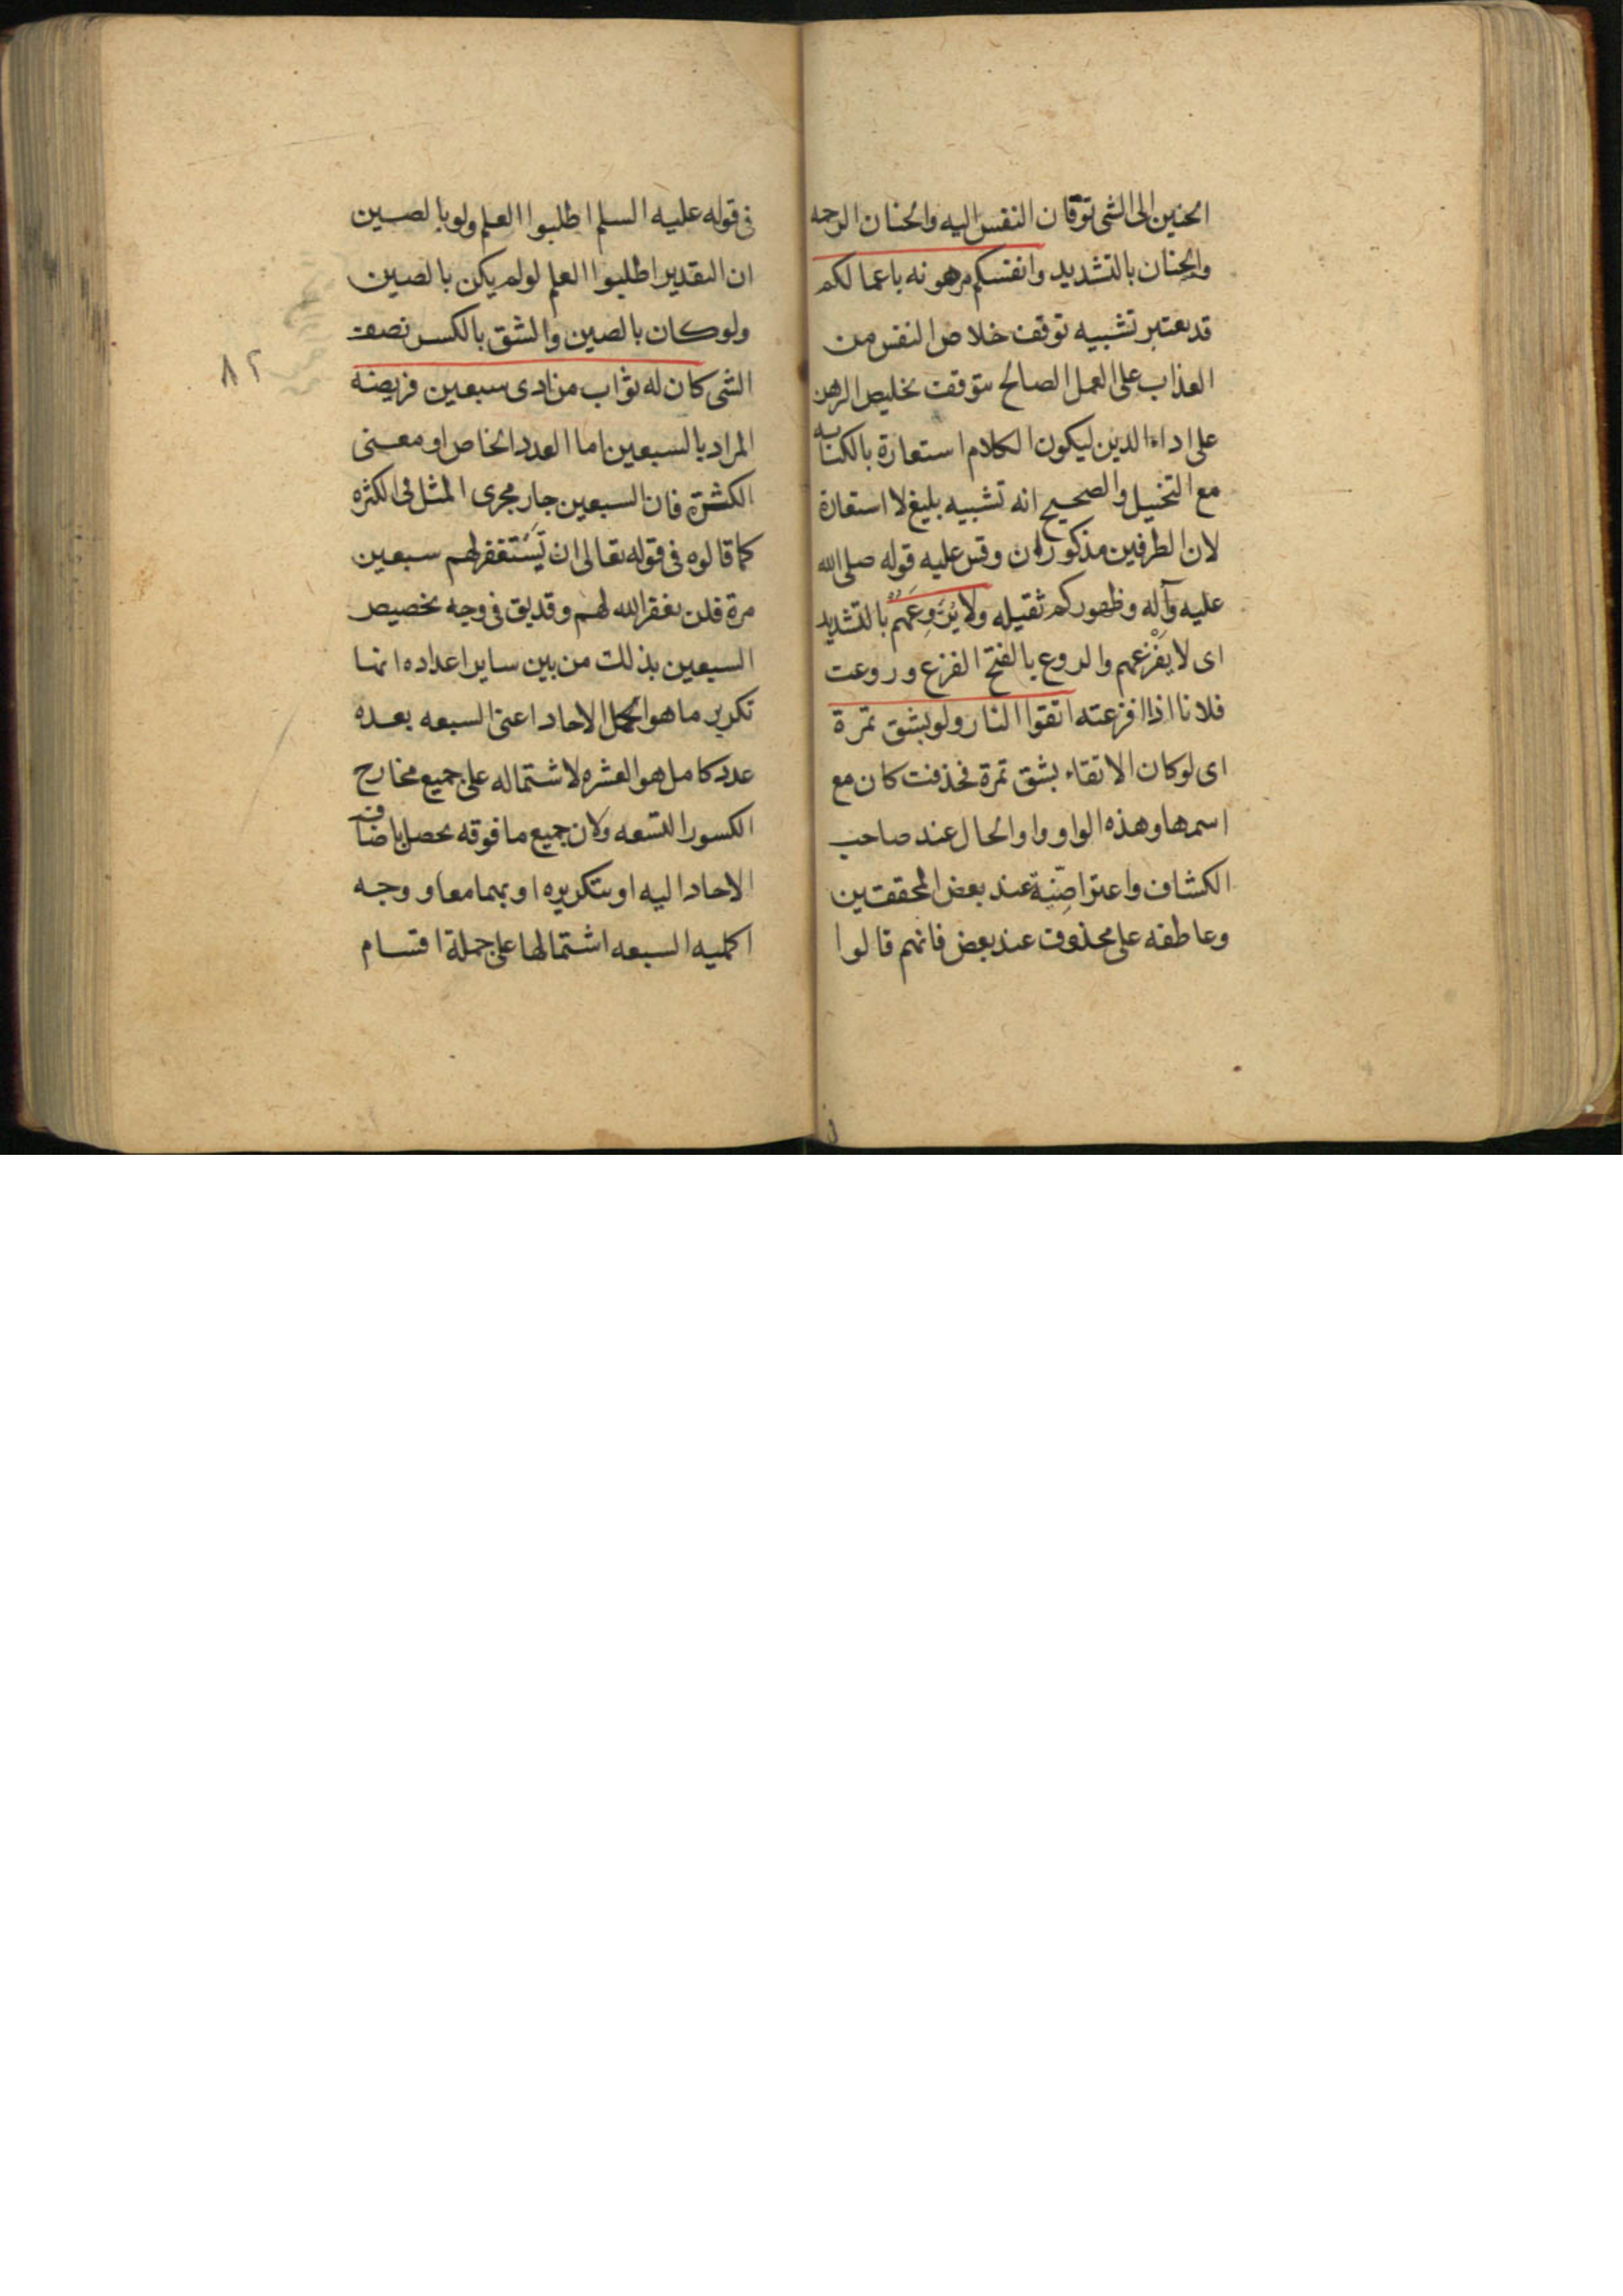 الحنين الى الشى توقان النفس اليه والحنان الرحمه
والحنان بالتشديد وانفسكم مرهونه باعمالكم
قد يعتبر تشبيه توقف خلاص النفس من
العذاب على العمل الصالح بتوقف تخليص الرهن
على اداء الدين ليكون الكلام استعارة بالكنايه
مع التخييل والصحيح انه تشبيه بليغ لا استعارة
لان الطرفين مذكوران وقس عليه قوله صلى الله
عليه وآله وظهوركم ثقيله ولا يُرَوِعَهُم بالتشديد
اى لا يفزعهم والروع بالفتح الفزع وروعت
فلانا اذا افزعته اتقوا النار ولو بشق تمرة
اى لو كان الاتقاء بشق تمرة فحذفت كان مع
اسمها وهذه الواو واو الحال عند صاحب
الكشاف واعتراضِيّة عند بعض المحققين
وعاطفه على محذوف عند بعض فانهم قالوا
فى قوله عليه السلم اطلبوا العلم ولو بالصين
ان التقدير اطلبوا العلم لو لم يكن بالصين
ولو كان بالصين والشق بالكسر نصف
الشى كان له ثواب من ادى سبعين فريضه
المراد بالسبعين اما العدد الخاص او معنى
الكثرة فان السبعين جار مجرى المثل فى الكثره
كما قالوه فى قوله تعالى ان تَسْتغفر لهم سبعين
مرة فلن يغفر الله لهم وقد يق فى وجه تخصيص
السبعين بذلك من بين ساير اعداده انها
تكرير ما هو اكمل الاحاد اعنى السبعه بعده
عدد كامل هو العشره لاشتماله على جميع مخارج
الكسور التسعه ولان جميع ما فوقه يحصل باضافة
الاحاد اليه او بتكريره او بهما معا و وجه
اكمليه السبعه اشتمالها على جملة اقسام
٨٢